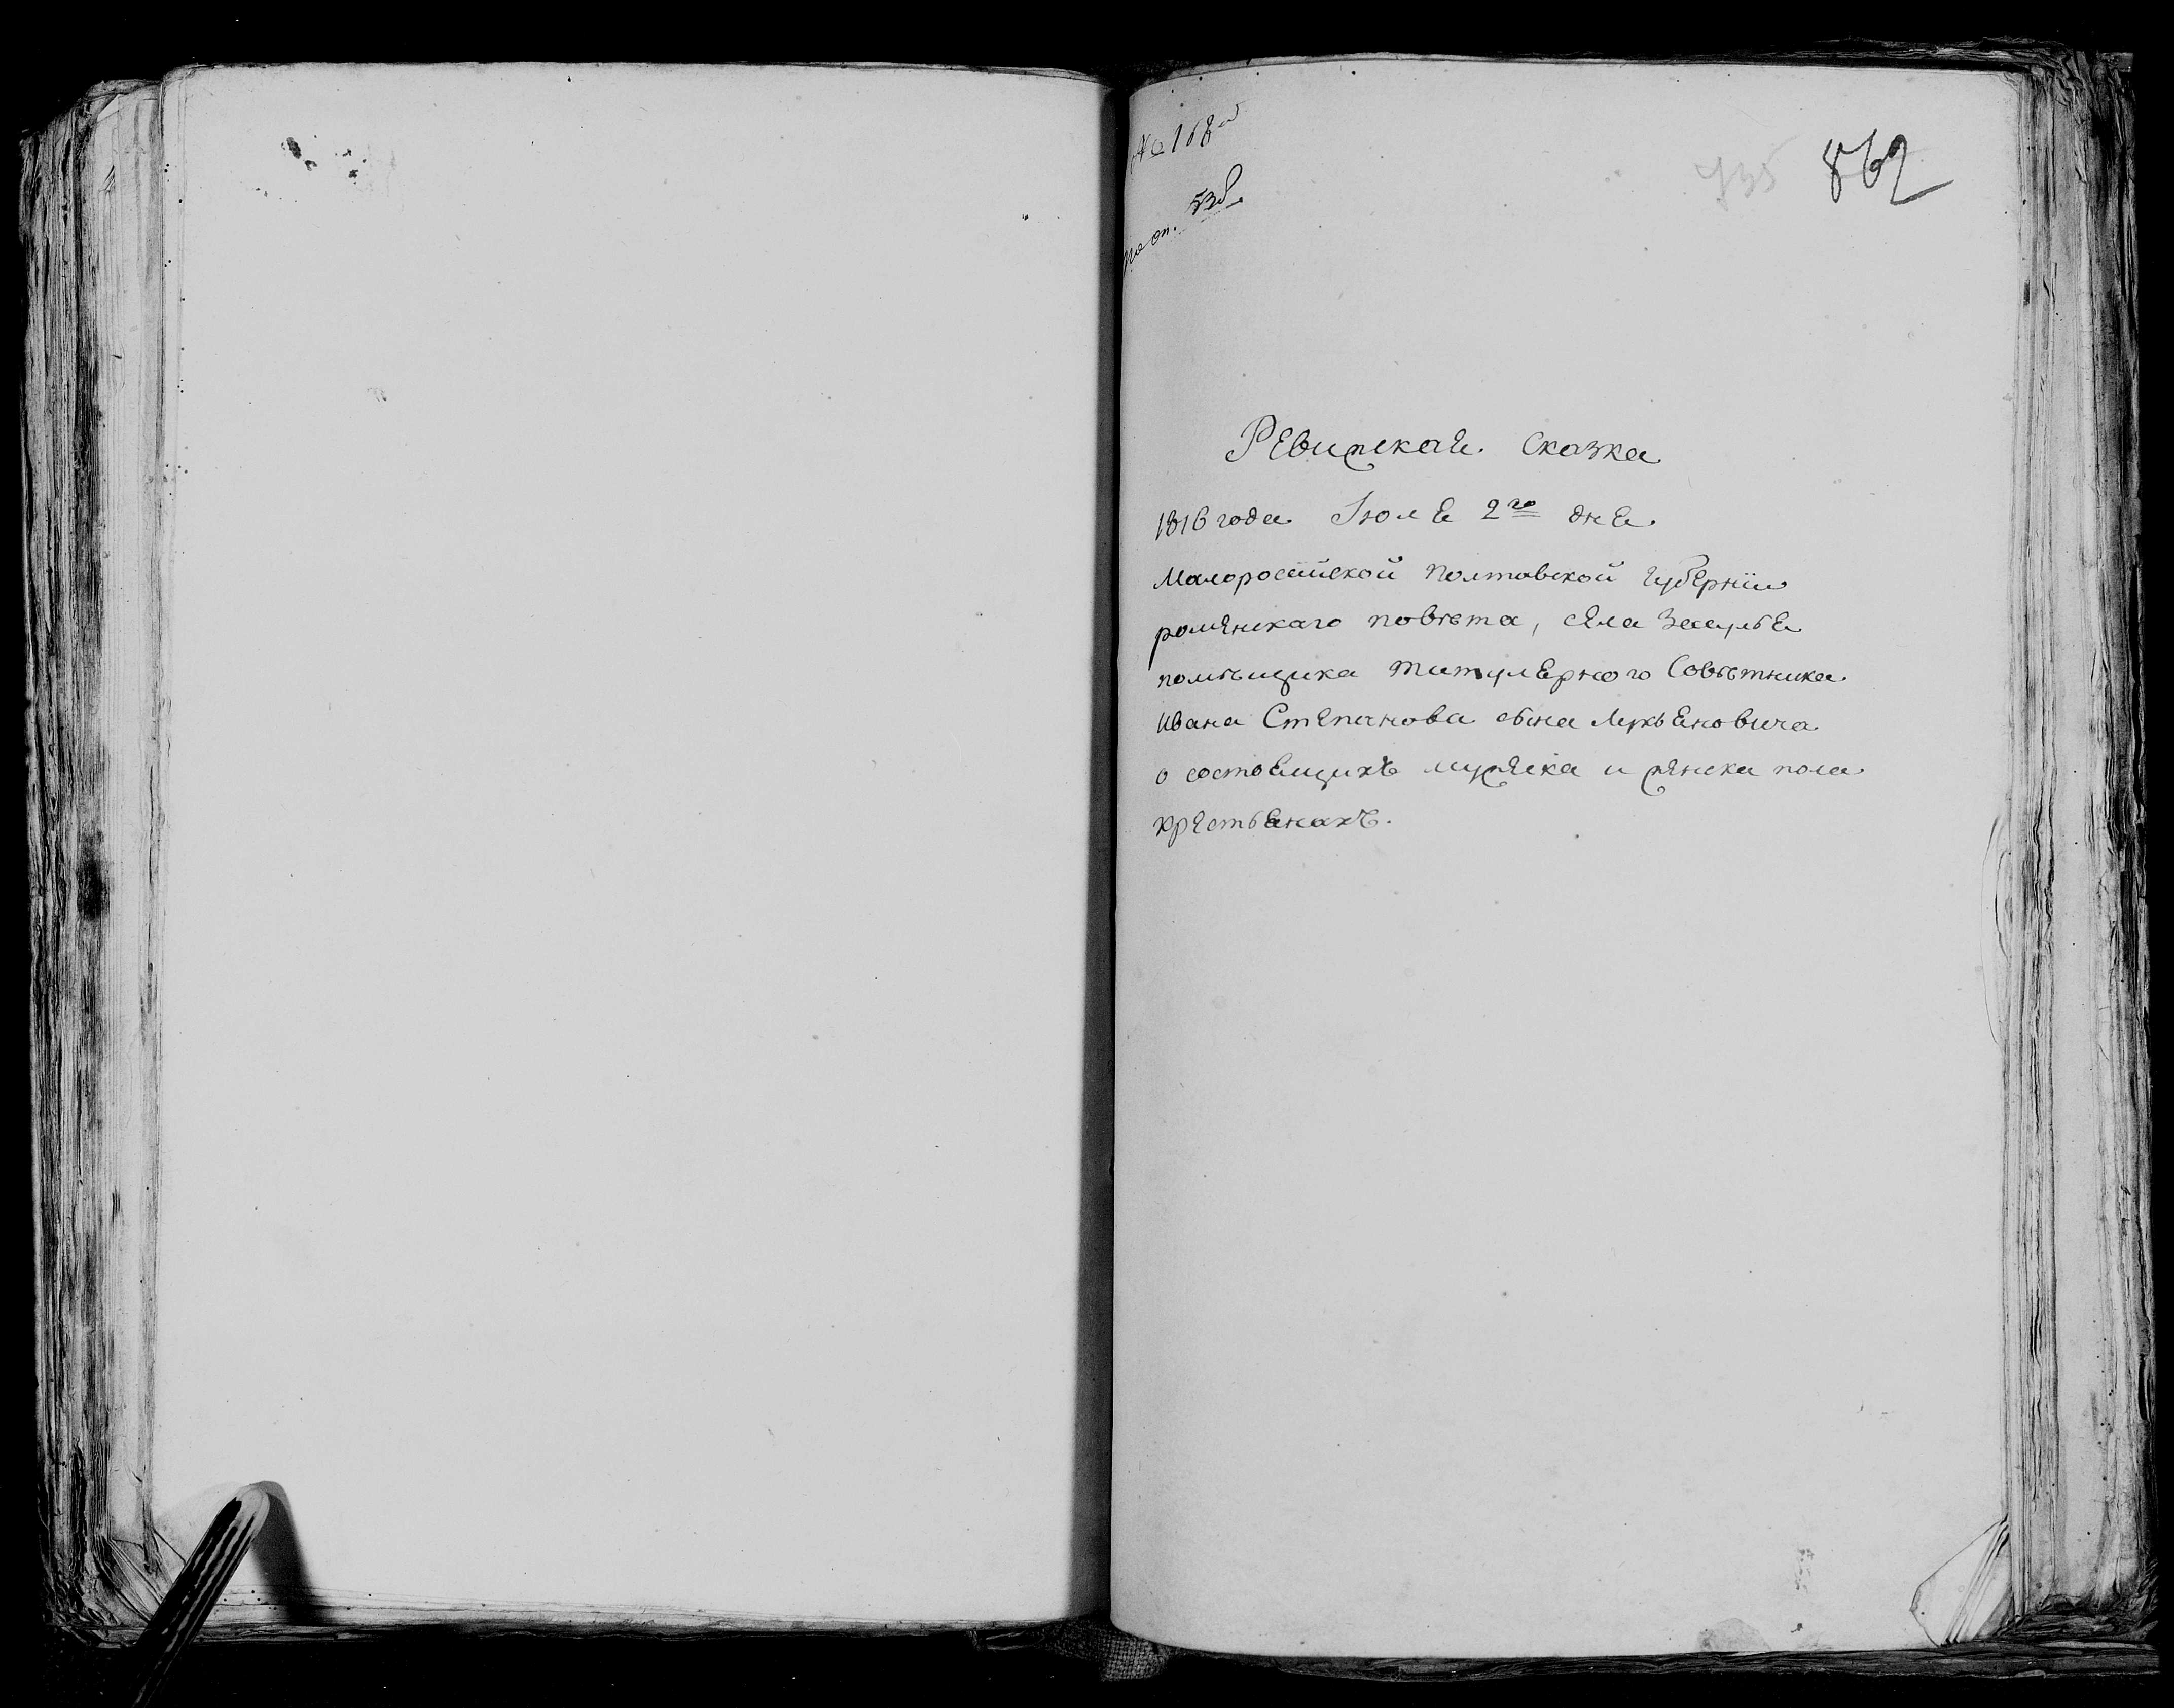 № 168й
по оп. 538.
862
Ревижская Сказка
1816 года Июля 2го дня
Малоросѣйской Полтавской Губернїи
роменскаго повѣта, села Засулья
помѣщика титулярного Совѣтника
Ивана Степанова сына Лукьяновича
о состоящихъ мужеска и женска пола
крестьянахъ.